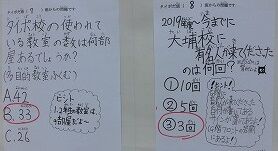 タイポ君( 9 )室からの問題です
タイポ校の使われて
いる教室の数は何部
屋あるでしょうか?
(多目的教室ふくむ)
A.42
B.33
C.26
ヒント
1、2年の教室は
8部屋だよ〜
タイポ君( 8 )室からの問題です
2019年度〜今までに
大埔校に
有名人が来てくださった
のは何回?
①10回
②5回
③3回
ヒント!